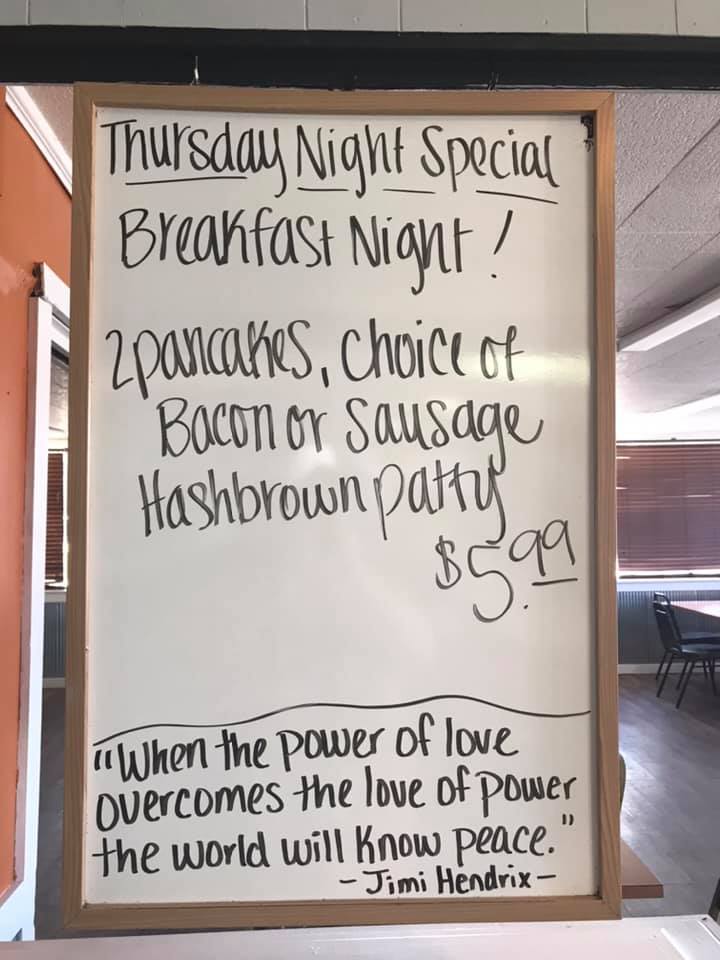 Thursday Night Special
Breakfast Night!
2 pancakes, Choice of
Bacon or Sausage
Hashbrown patty
$5.99
"When the power of love
overcomes the love of power
the world will know peace."
- Jimi Hendrix -